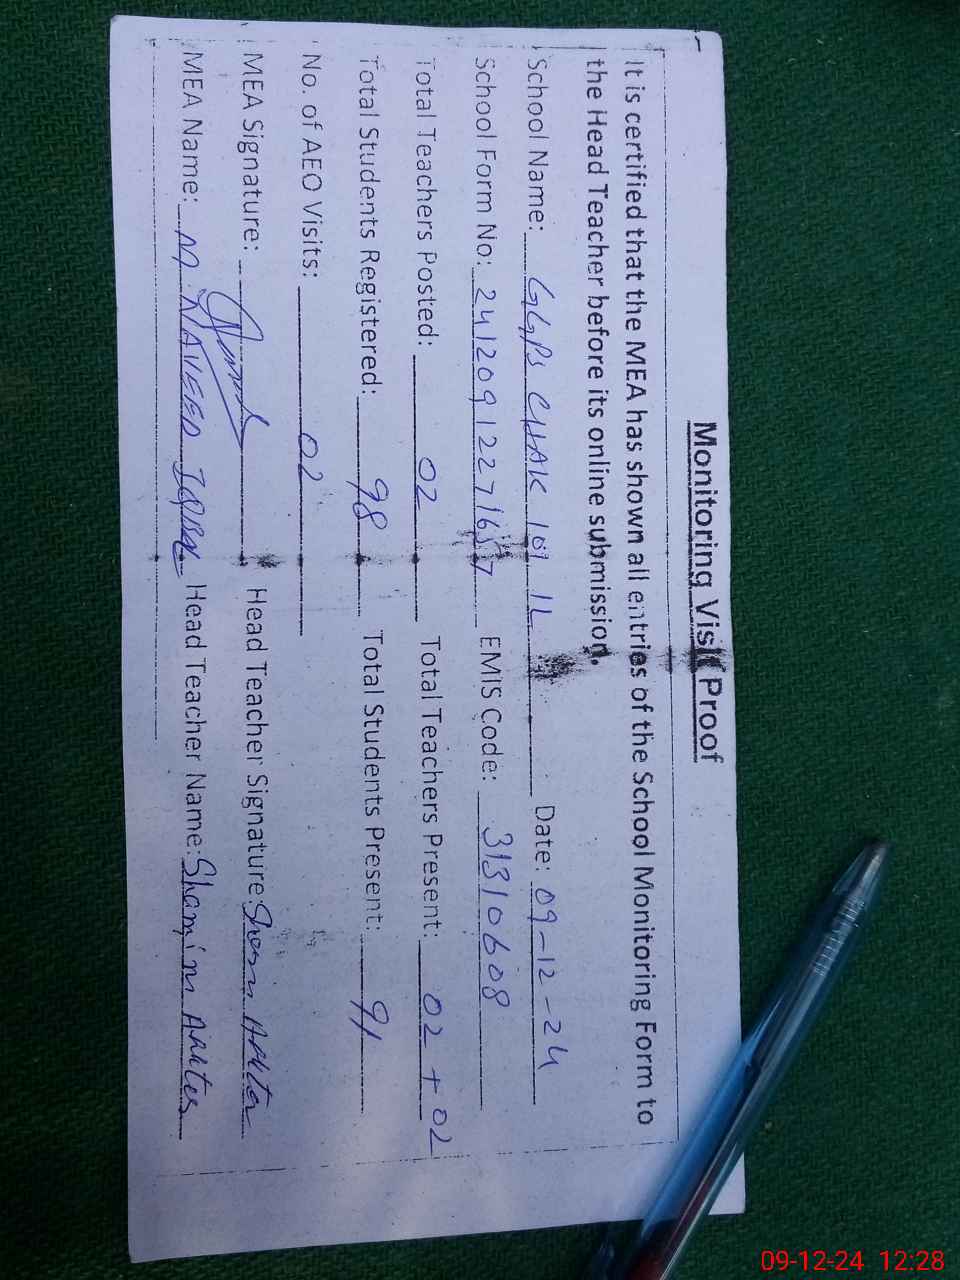 Monitoring Visit Proof
It is certified that the MEA has shown all entries of the School Monitoring Form to
the Head Teacher before its online submission.
School Name: GGPS CHAK 109 1L Date: 09-12-24
School Form No: EMIS Code: 31310608
Total Teachers Posted: 02 Total Teachers Present: 02 + 02
Total Students Registered: 98 Total Students Present: 91
No. of AEO Visits: 02
MEA Signature: Head Teacher Signature:
MEA Name: M. NAVEED IQBAL Head Teacher Name: Shamim Akhter
09-12-24 12:28